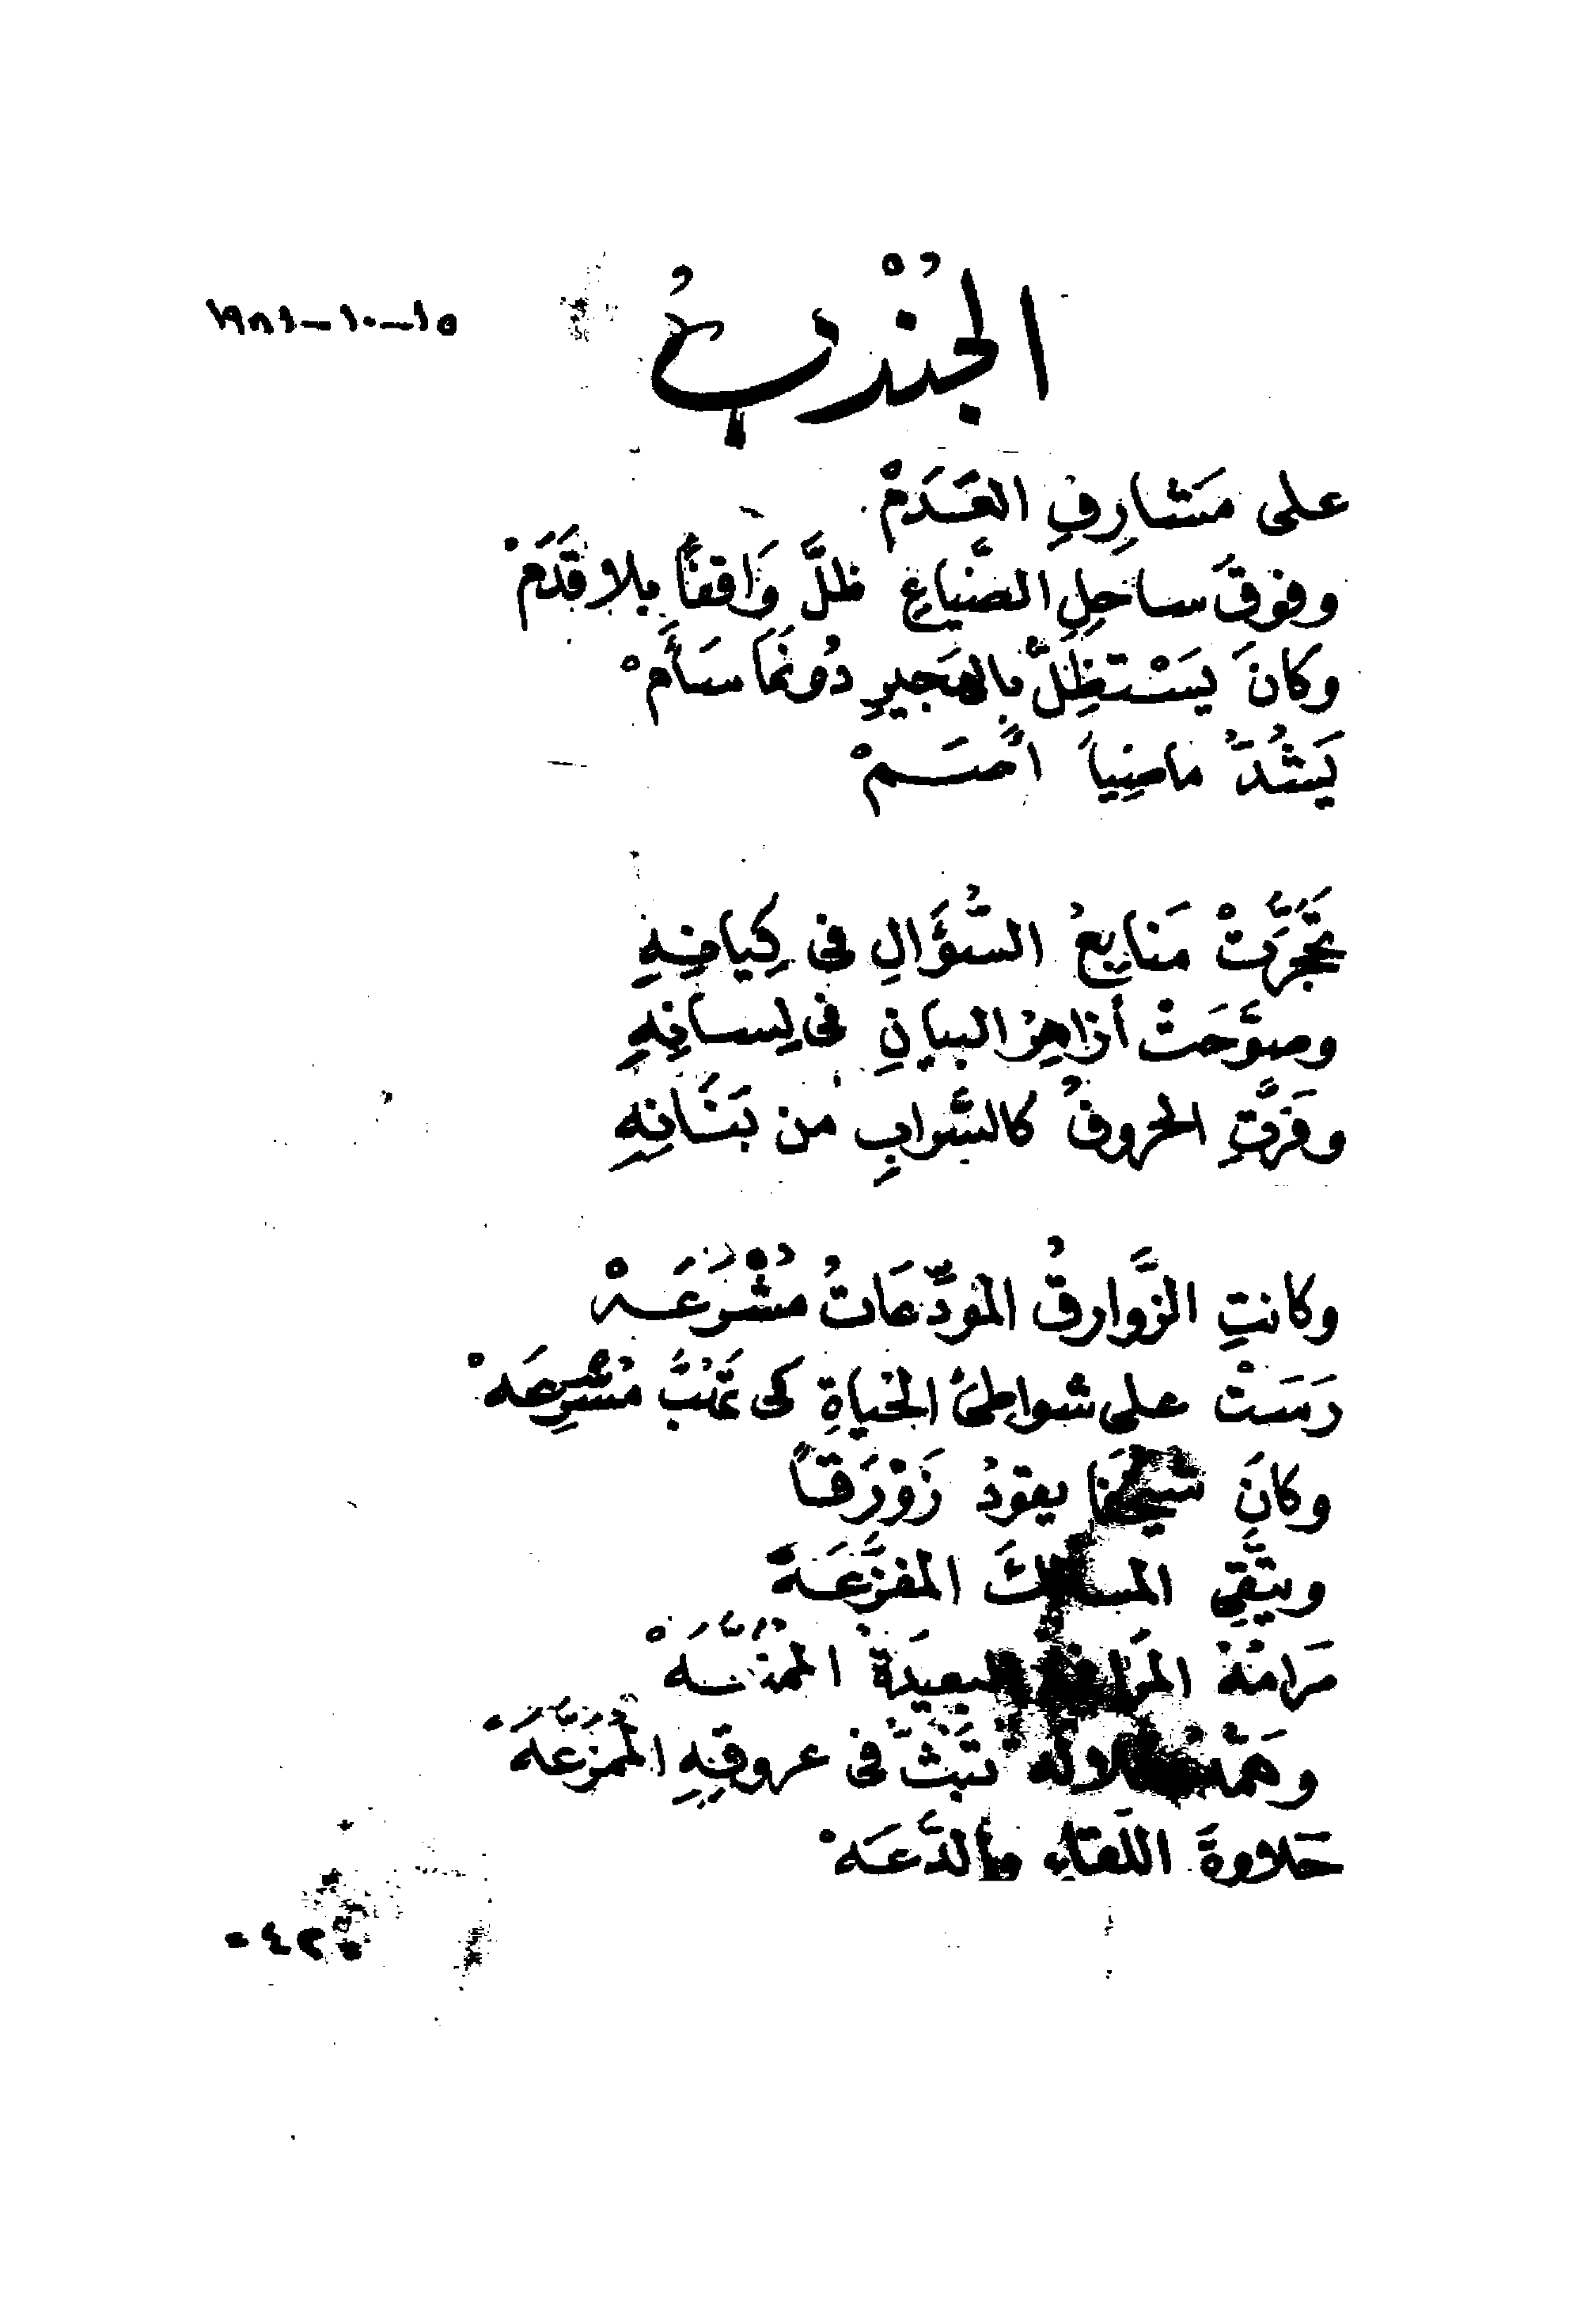 ١٩٨٤-١٠-١٥
على مَشارِفِ العَدَمْ
وفوقَ ساحلِ الضَّياعِ ظلَّ وَاقفاً بلا قَدَمْ
وكانَ يَسْتظِلُّ بالهَجيرِ دُونَمَا سَأَمْ
يَشُدُّ ماضِياً أصَمْ
تَحَجَّرَتْ مَنابِعُ السُّؤَالِ في كِيانِهِ
وصوَّحَتْ أزاهِرُ البيانِ في لِسانِهِ
وفَرَّتِ الحروفُ كالسَّرابِ من بَنَانِهِ
وكانتِ الزَّوارقُ المُودِّعَاتُ مُشْرَعَهْ
رَسَتْ على شواطئِ الحَياةِ كى تَهُبَّ مُسْرِعَهْ
وكانَ شيخُنا يقودُ زَوْرَقاً
ويتَّقِي المسالكَ المفزِّعَهْ
البعيدَةُ
في عروقِهِ المُمَزَّعَهْ
حَلاوةَ اللِّقاءِ والدَّعَهْ
٤٢٠